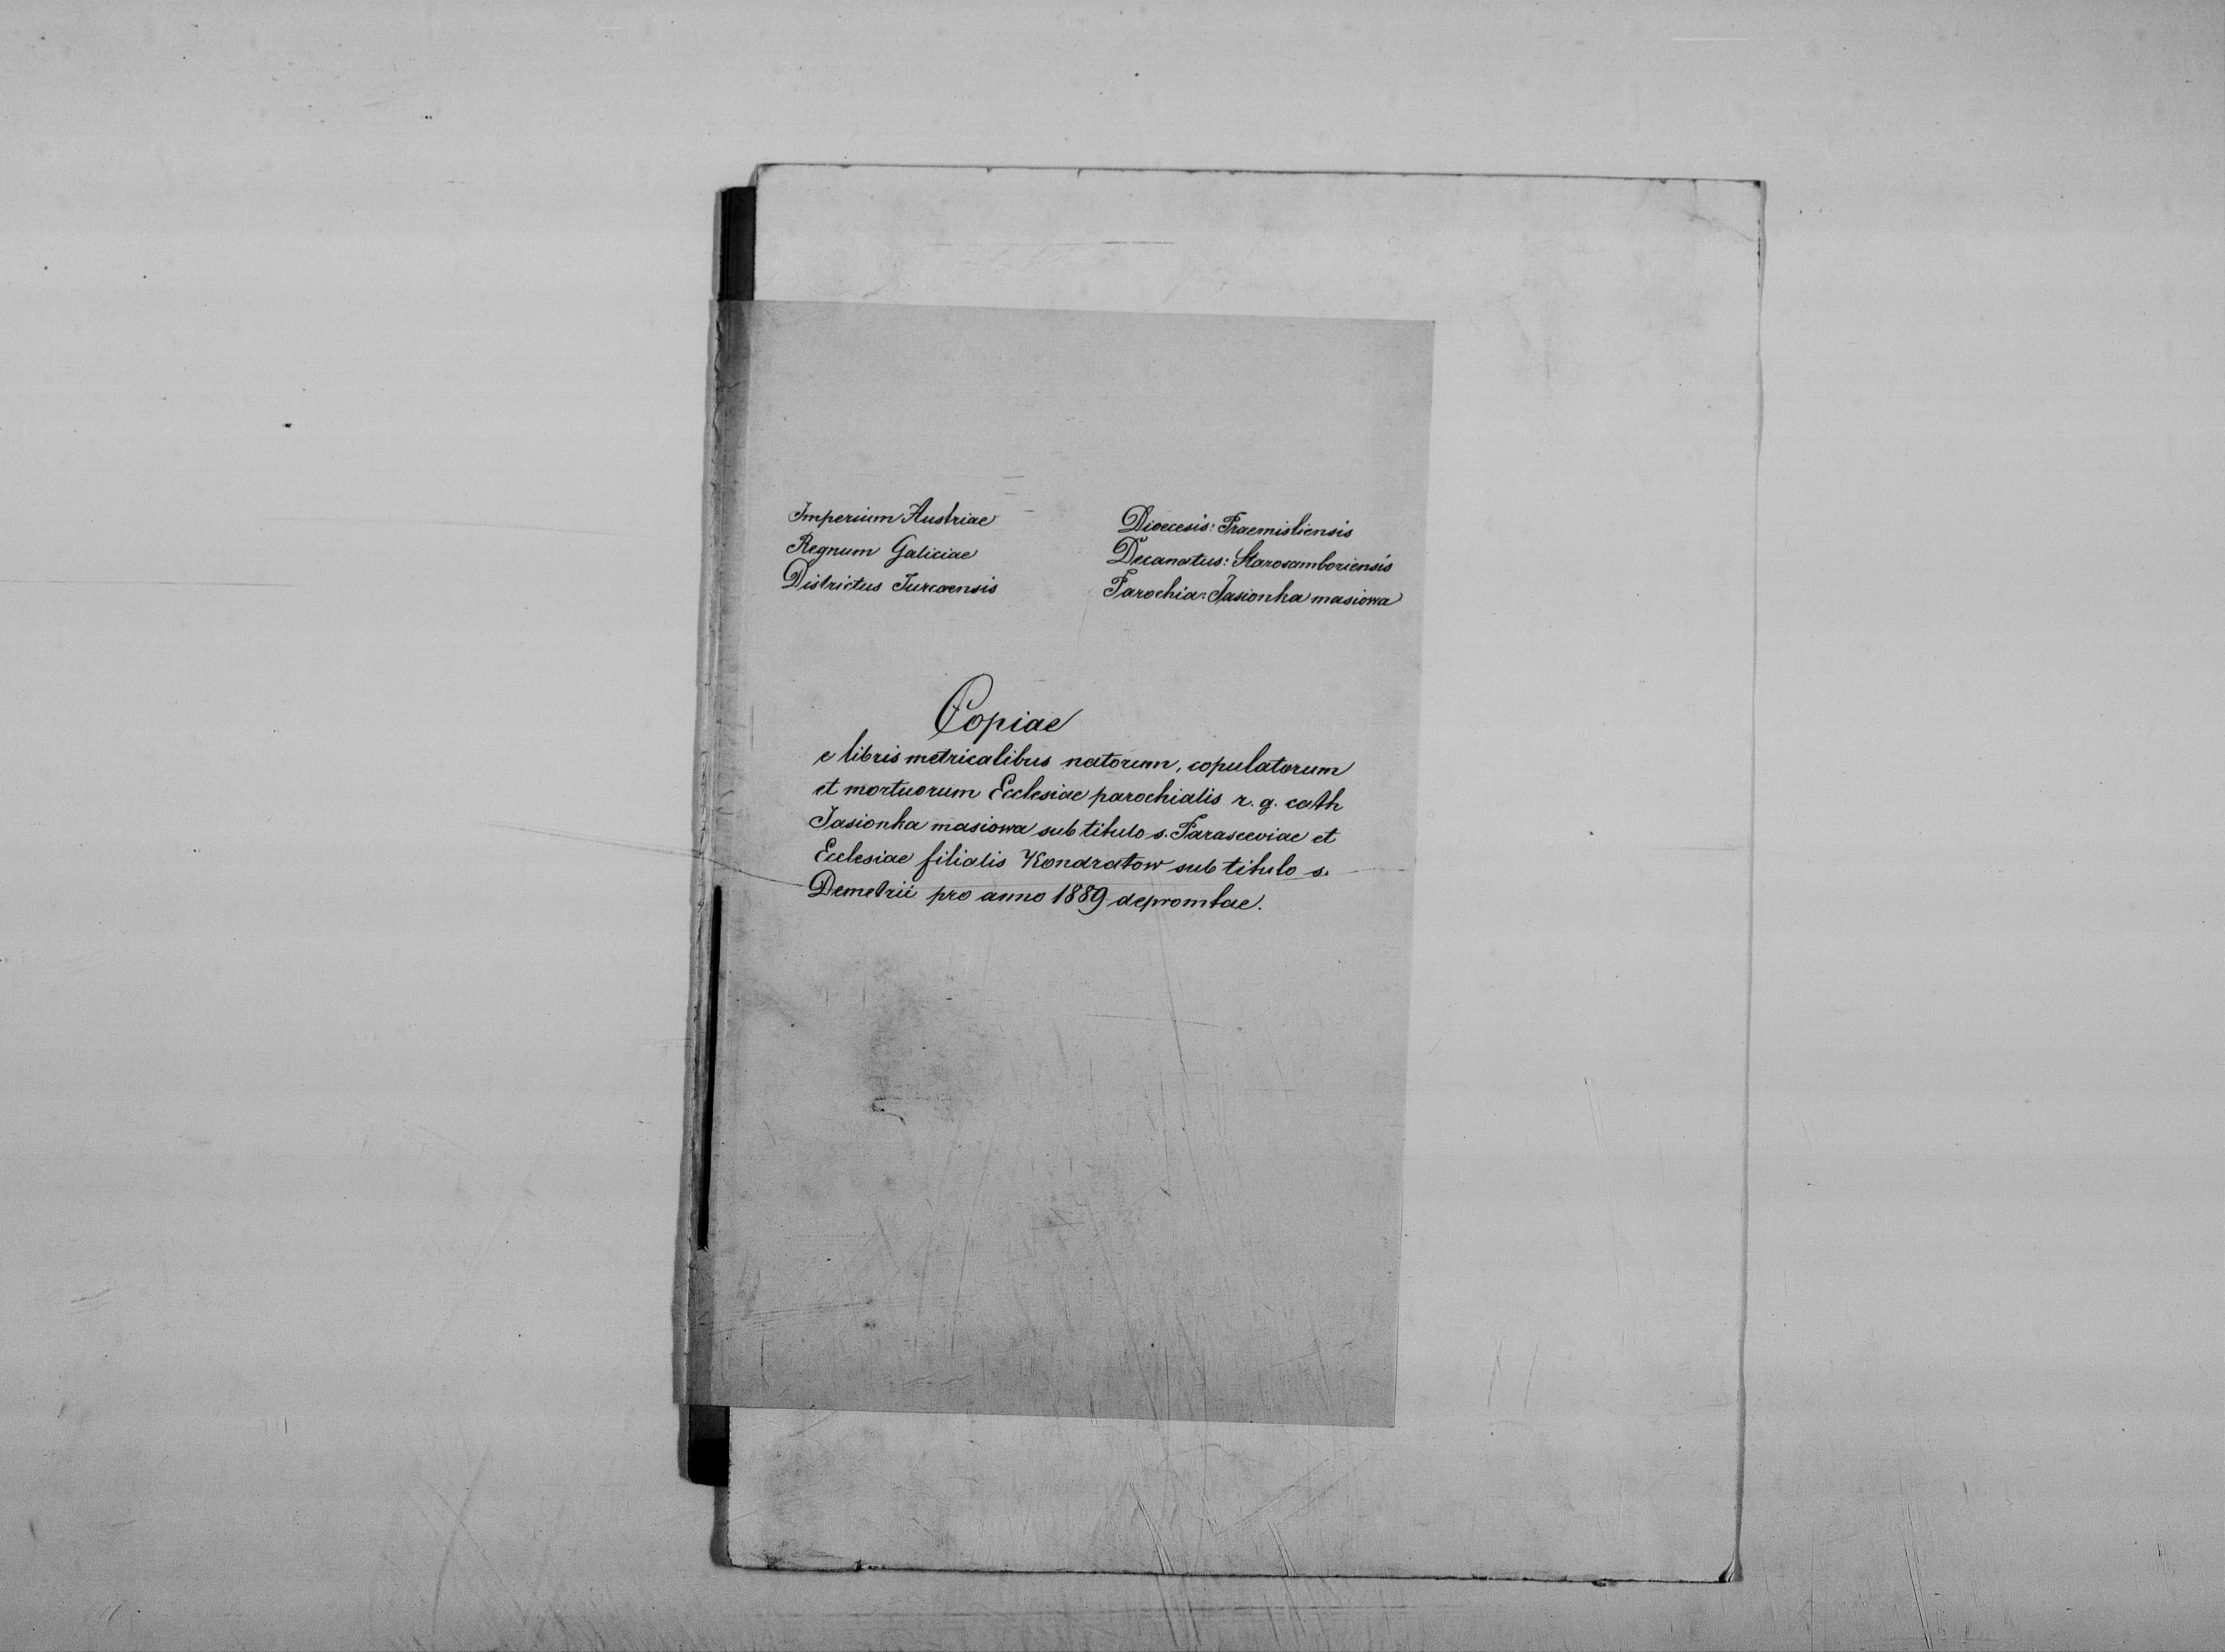 Imperium Austriae
Regnum Galiciae
Districtus Turcaensis
Dioecesis: Praemisliensis
Decanatus: Starosamboriensis
Parochia: Jasionka masiowa
Copiae
e libris metricalibus natorum, copulatorum
et mortuorum Ecclesiae parochialis r. g. cath
Jasionka masiowa sub titulo s. Parasceviae et
Ecclesiae filialis Kondratow sub titulo s.
Demetrii pro anno 1889 depromtae.